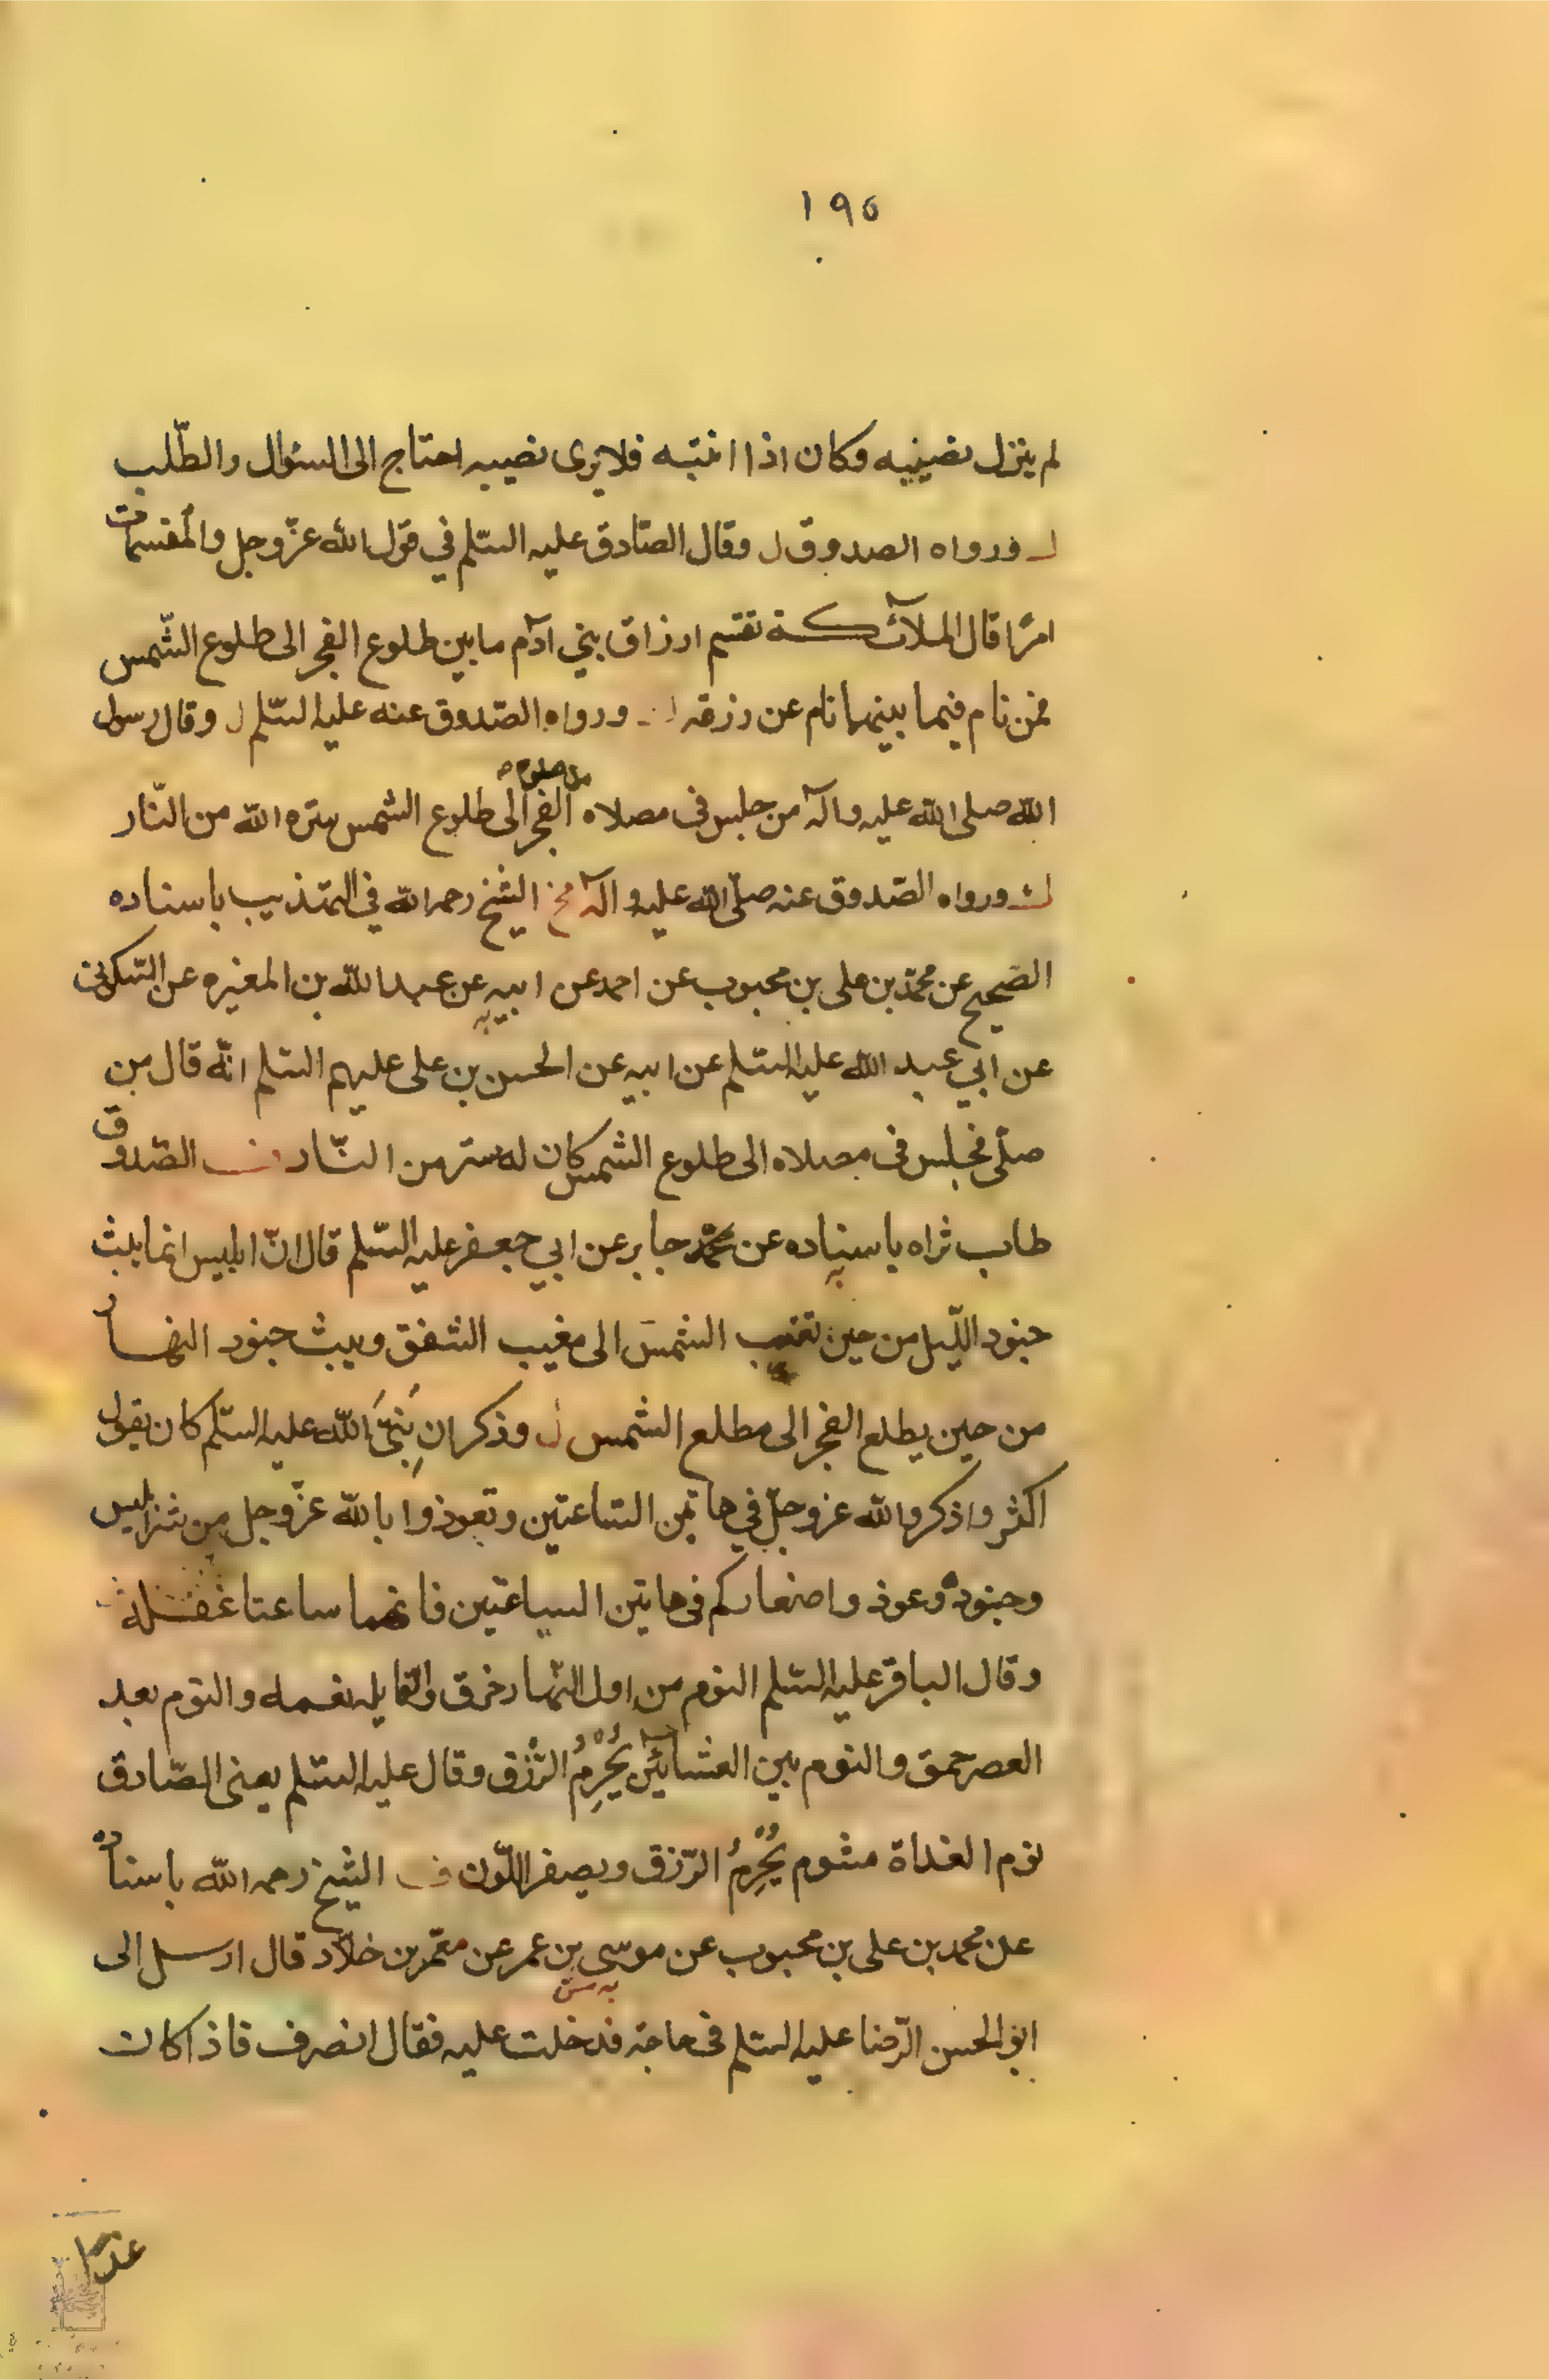 ١٩٥
لم ينزل نصيبه وكان اذا انتبه فلا يرى نصيبه احتاج الى السئوال والطّلب
ورواه الصدوق ل وقال الصّادق عليه السّلم في قول الله عزّ وجل والمُقسمات
امرًا قال الملآئكة تقسم ارزاق بني آدم ما بين طلوع الفجر الى طلوع الشّمس
فمن نام فيما بينهما نام عن رزقه ورواه الصّدوق عنه عليه السّلم ل وقال رسول
الله صلى الله عليه وآله من جلس فى مصلاه من صلوة الفجر الى طلوع الشمس ستره الله من النّار
ورواه الصّدوق عنه صلّى الله عليه وآله الشيخ رحمه الله في التهذيب باسناده
الصّحيح عن محمّد بن على بن محبوب عن احمد عن ابيه عن عبد الله بن المغيره عن السّكونى
عن ابي عبد الله عليه السّلم عن ابيه عن الحسن بن على عليهم السّلم انّه قال من
صلّى فجلس فى مصلاه الى طلوع الشمس كان له ستر من النّار الصّدوق
طاب ثراه باسناده عن جابر عن ابي جعفر عليه السّلم قال انّ ابليس انما يبث
جنود اللّيل من حين تغيب الشمس الى مغيب الشفق ويبث جنود النهار
من حين يطلع الفجر الى مطلع الشمس وذكر ان نبىّ الله عليه السّلم كان يقول
اكثروا ذكر الله عز وجلّ في هاتين السّاعتين وتعوذوا بالله عزّ وجل من شر ابليس
وجنوده وعوذوا صغاركم فى هاتين الساعتين فانهما ساعتا غفلة
وقال الباقر عليه السّلم النوم من اول النّهار خرق والقايله نعمه والنوم بعد
العصر حمق والنوم بين العشائين يُحْرِمُ الرّزق وقال عليه السّلم يعنى الصّادق
نوم الغداة مشوم يُحْرِمُ الرّزق ويصفر اللّون الشيخ رحمه الله باسناده
عن محمد بن على بن محبوب عن موسى بن عمر عن معمّر بن خلّاد قال ارسل الى
ابو الحسن الرّضا عليه السّلم فى حاجة فدخلت عليه فقال انصرف فاذا كان
غدًا